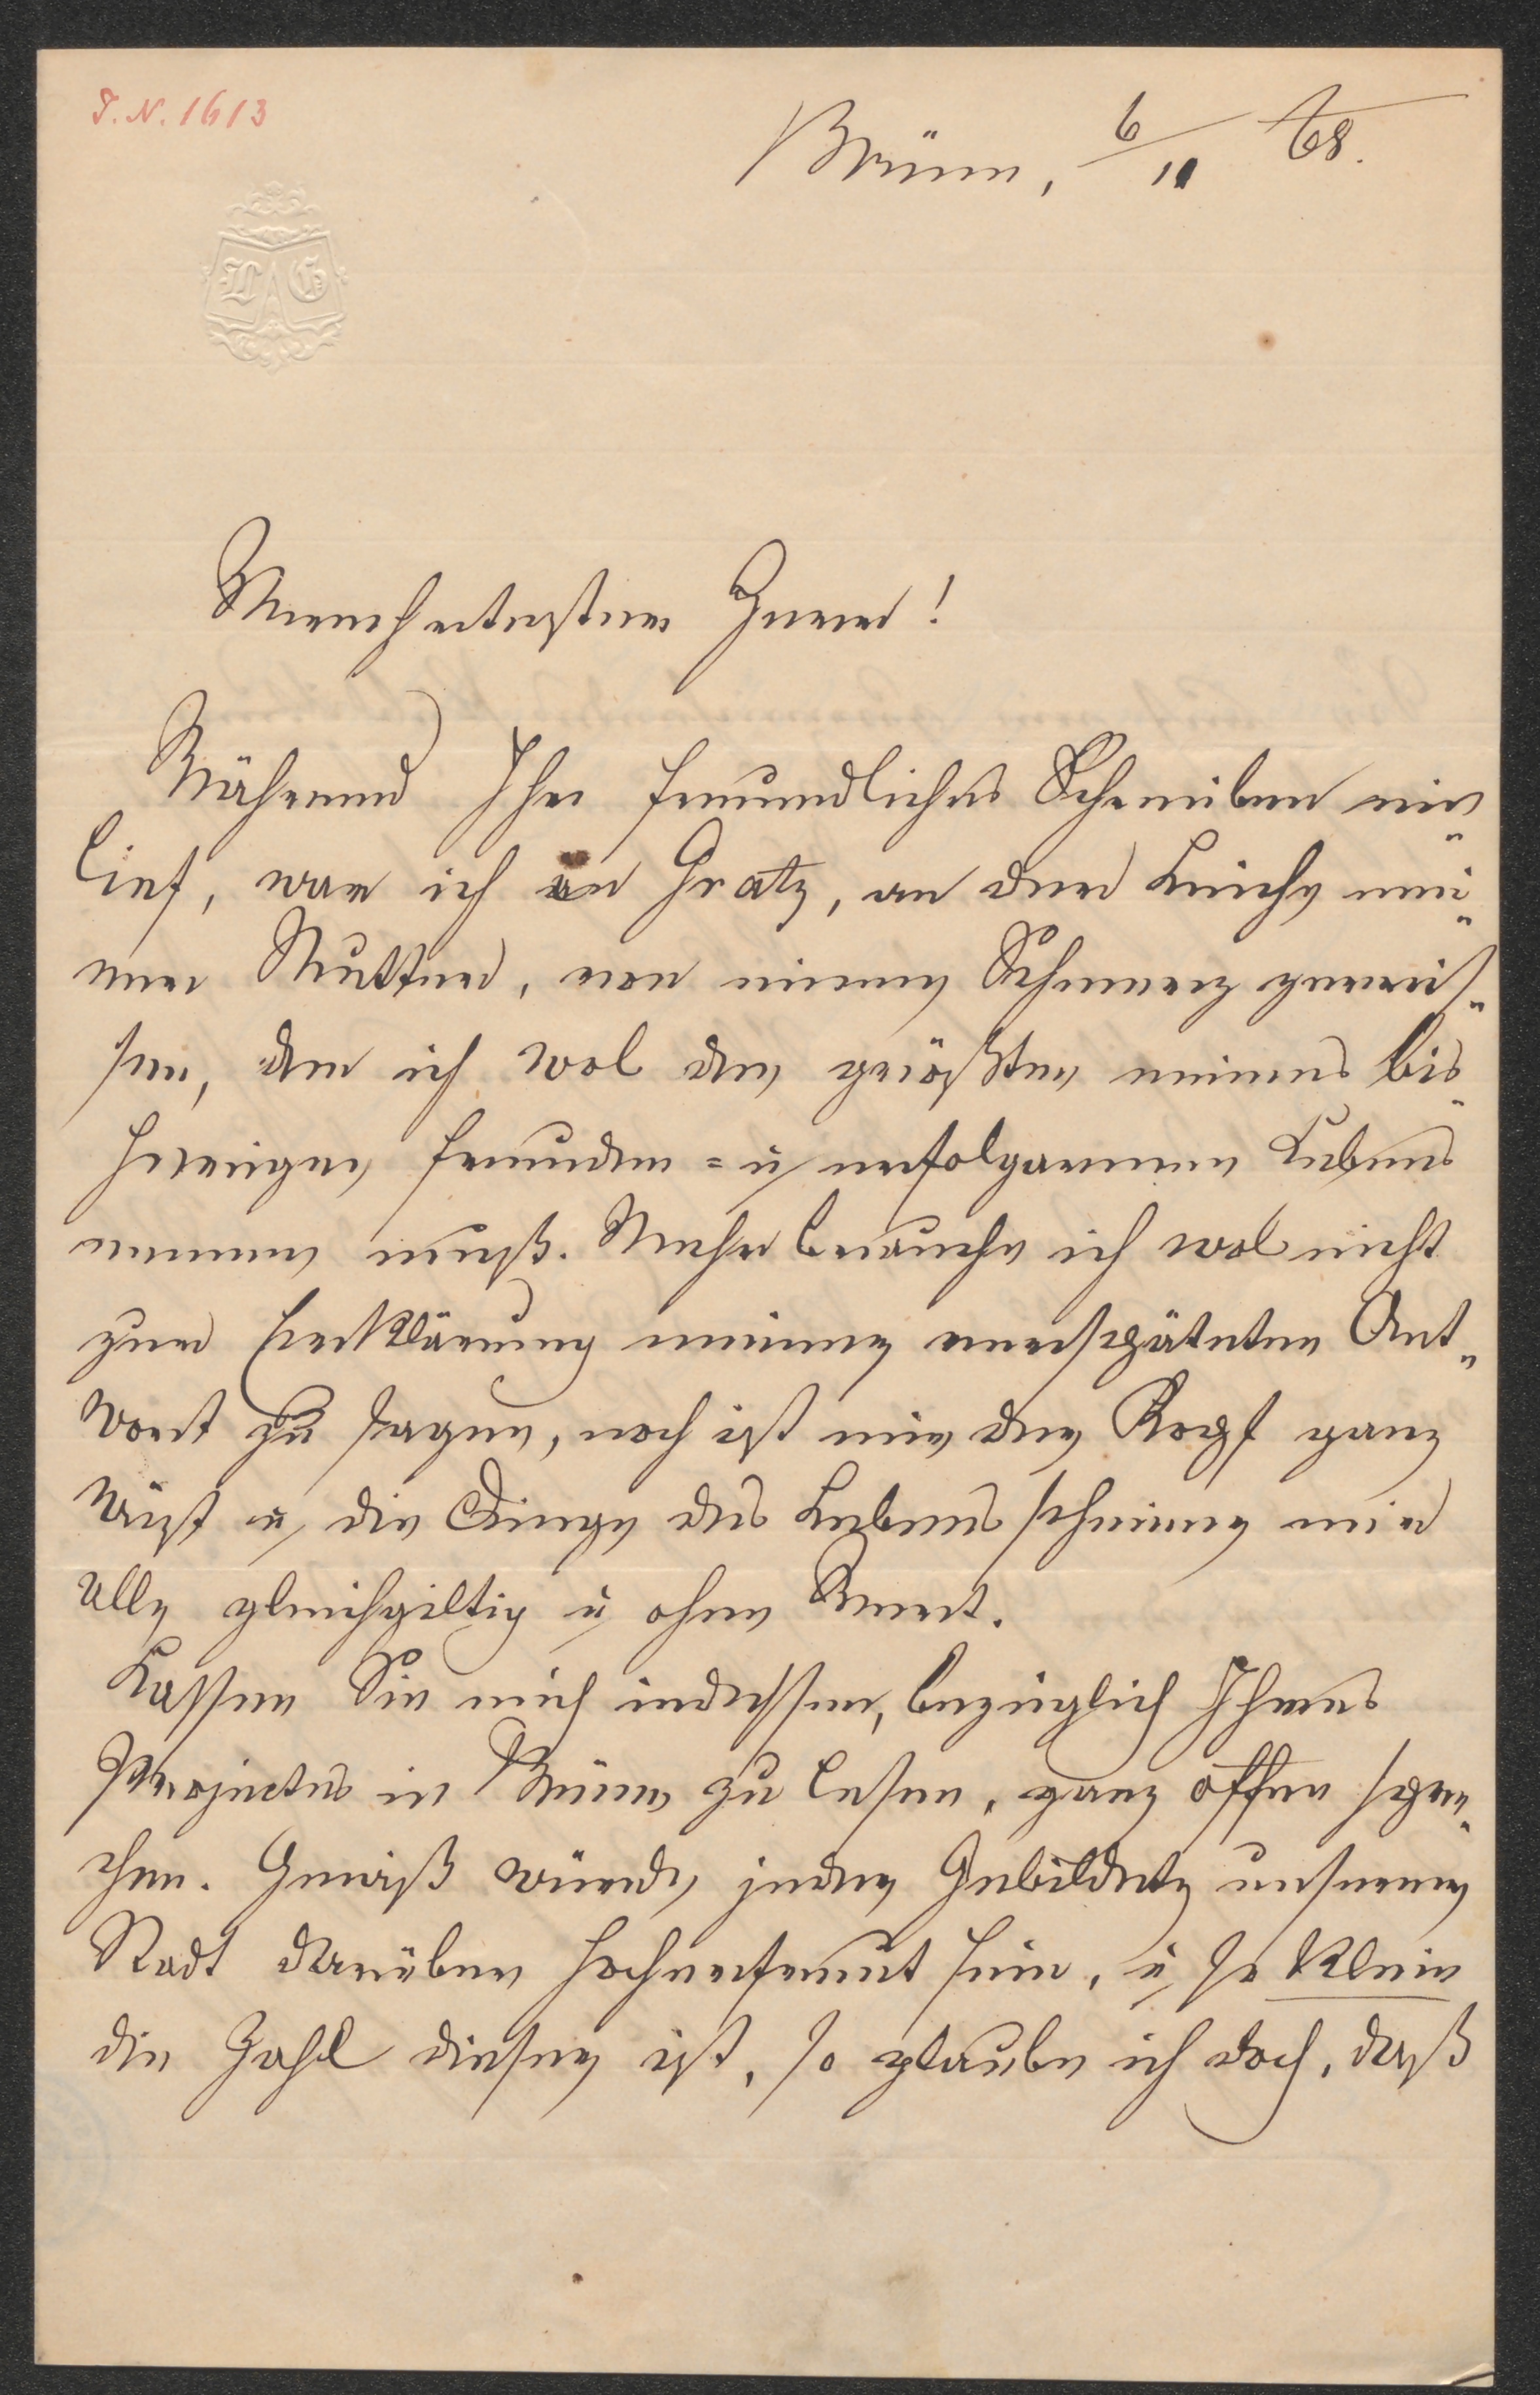 I.N. 1613
Brünn, 6/11 68.
L G
Verehrtester Herr!
Während Ihr freundliches Schreiben ein
lief, war ich in Gratz, an der Leiche mei„
ner Mutter, von einem Schmerz zerris„
sen, den ich wol den größten meines bis„
herigen freuden= u erfolgarmen Lebens
nennen muß. Mehr brauche ich wol nicht
zur Erklärung meiner verspäteten Ant„
wort zu sagen, noch ist mir der Kopf ganz
wüst u die Dinge des Lebens scheinen mir
alle gleichgiltig u ohne Wert.
Lassen Sie mich indessen, bezüglich Ihres
Projectes in Brünn zu lesen, ganz offen spre„
chen. Gewiß würde jeder Gebildete unserer
Stadt darüber hocherfreut sein, u so klein
die Zahl dieser ist, so glaube ich doch, daß